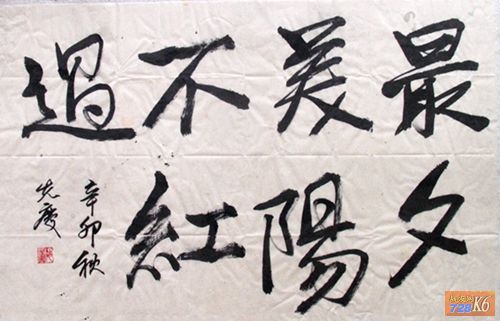 最美不過
夕陽紅
辛卯秋
先慶
728K6